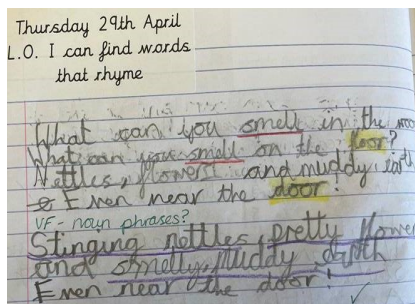 Thursday 29th April
L.O. I can find words
that rhyme
What can you smell in the
What can you smell on the floor?
Nettles, flowers and muddy
Even near the door!
VF - noun phrases?
Stinging nettles, pretty flower
and smelly, muddy
Even near the door!